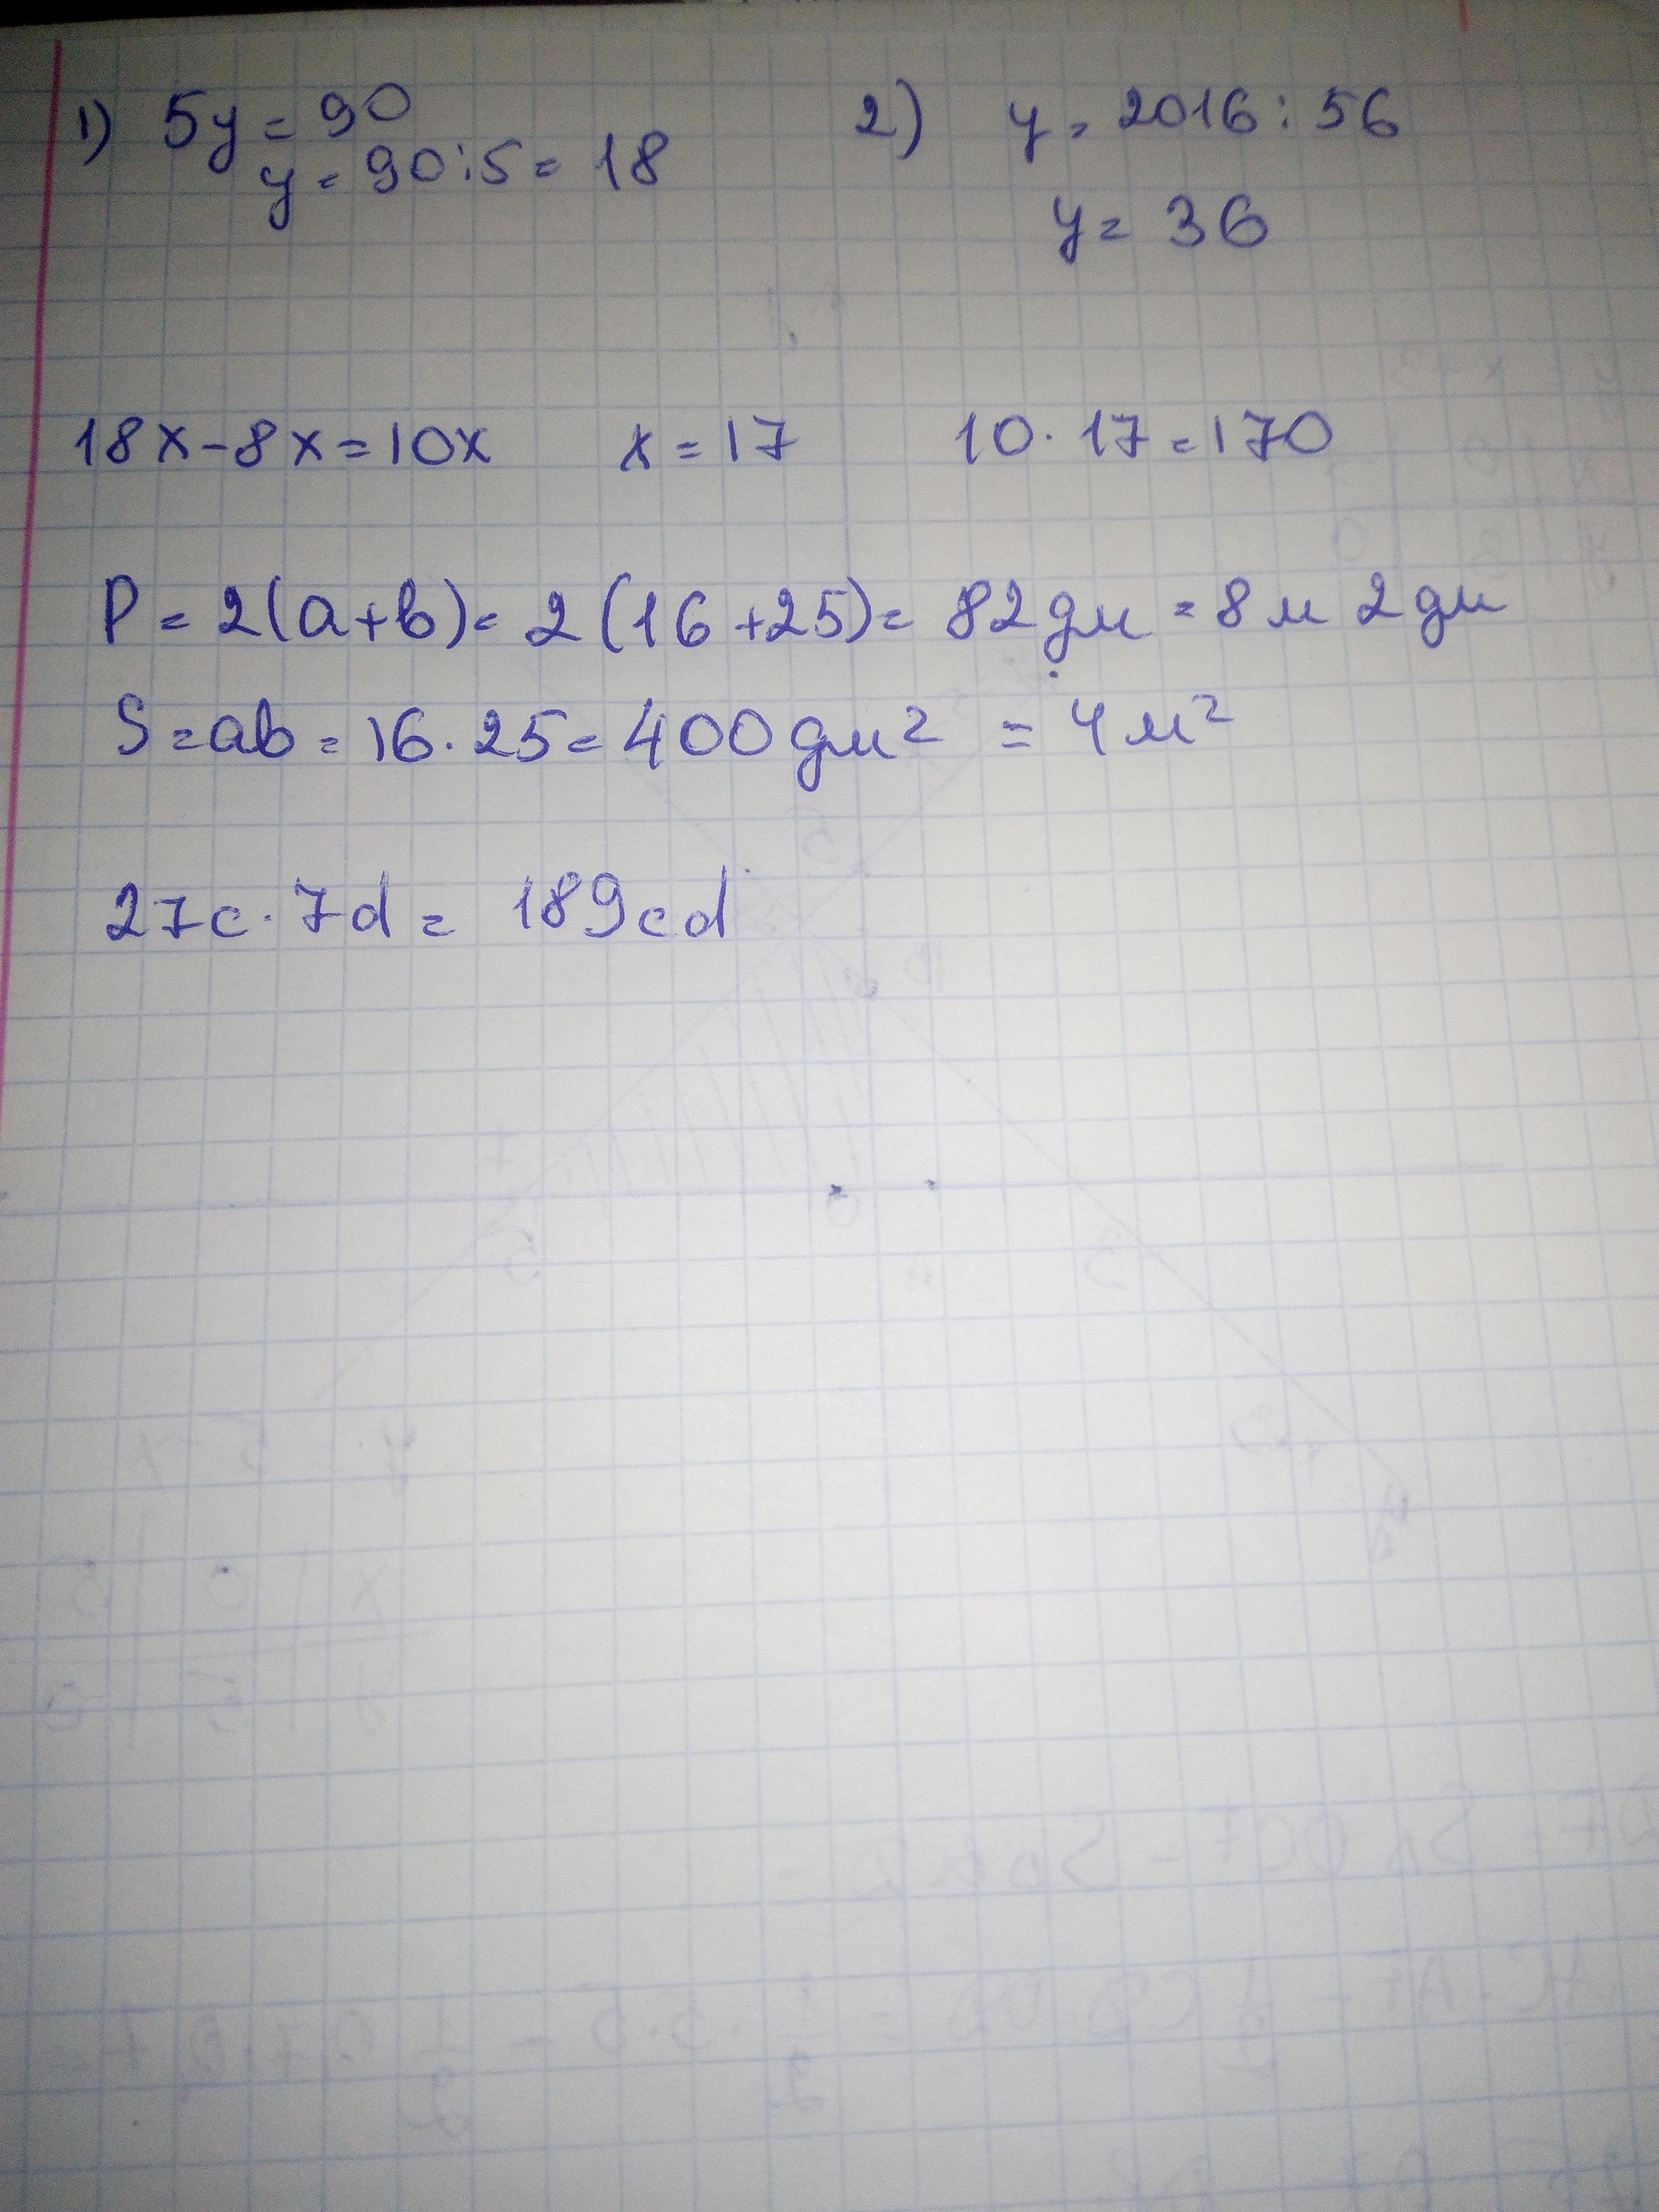 1) 5y = 90
y = 90:5 = 18
2) y = 2016:56
y = 36
18x-8x=10x x=17 10·17=170
P = 2(a+b) = 2(16+25) = 82дм = 8м 2дм
S=ab=16·25=400дм² = 4м²
27c·7d = 189cd